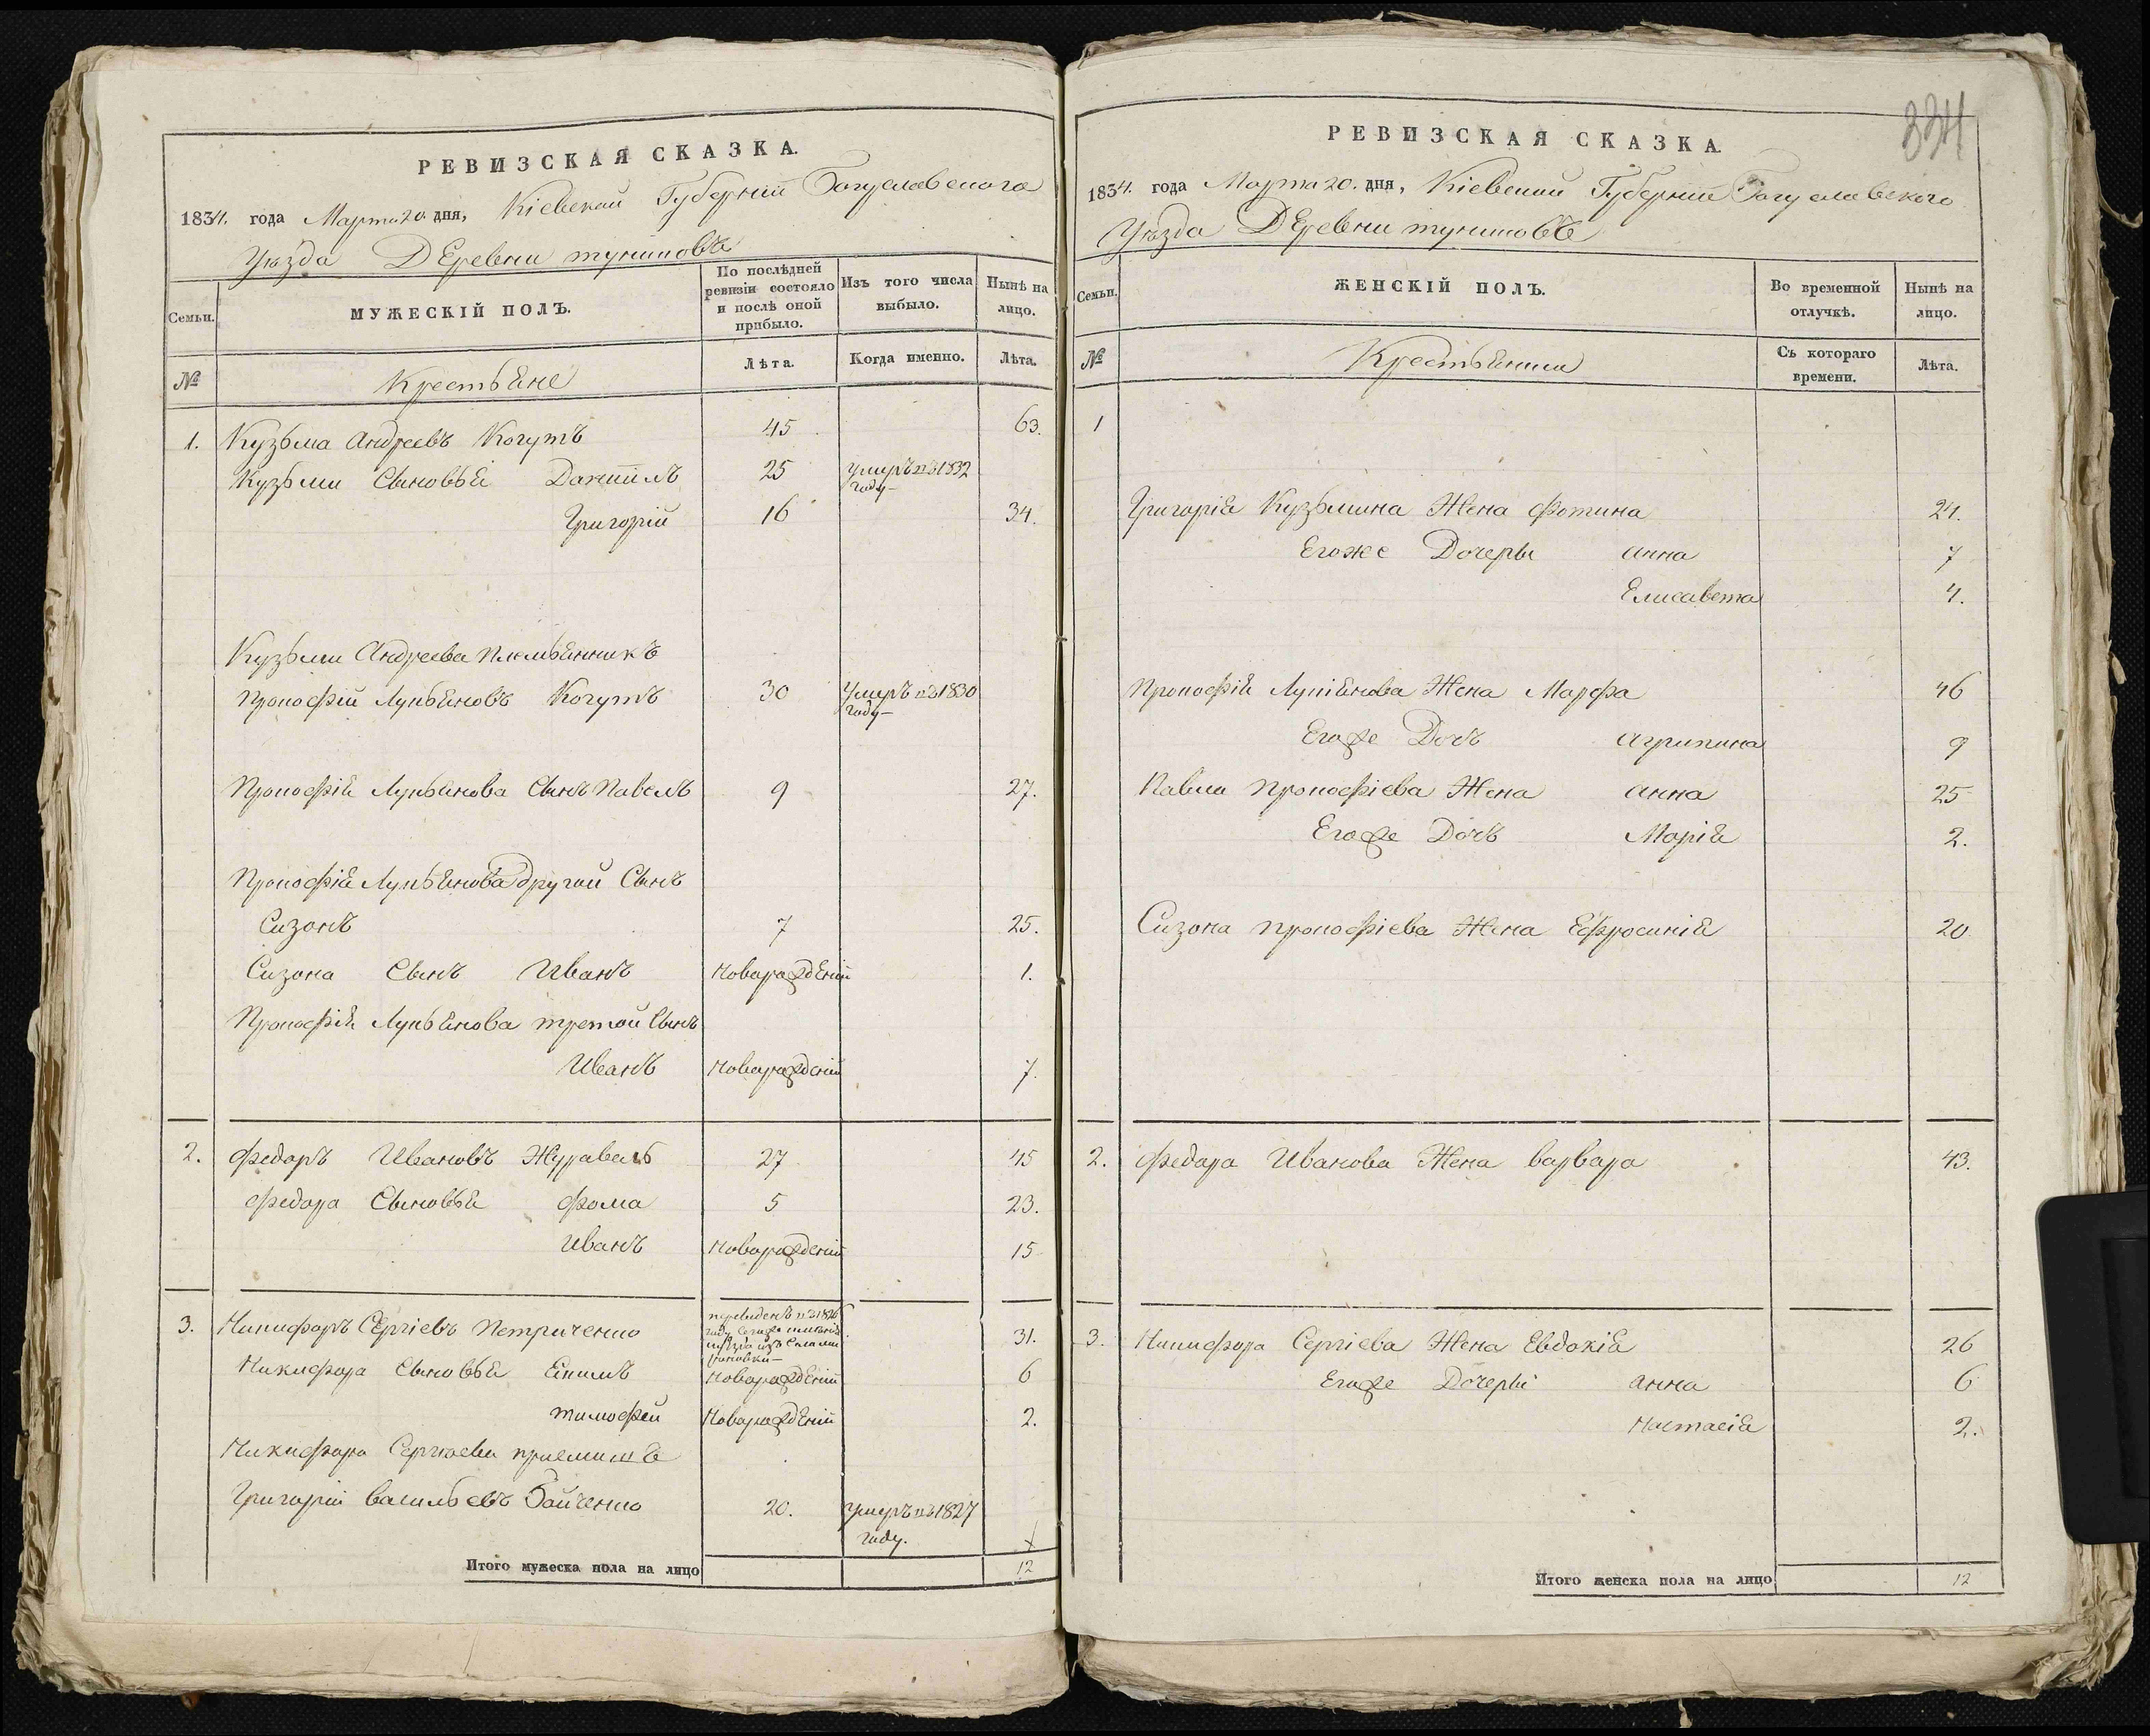 РЕВИЗСКАЯ СКАЗКА.
1834. года Марта 20. дня, Кіевской Губерніи Богуславскаго
Уѣзда Деревни туниповъ
Семьи.
МУЖЕСКІЙ ПОЛЪ.
По послѣдней ревизіи состояло и послѣ оной прибыло.
Изъ того числа выбыло.
Нынѣ на лицо.
№
Крестьяне
Лѣта.
Когда именно.
Лѣта.
1. Кузьма Андреевъ Когутъ 45 63.
Кузьмы Сыновья Даніилъ 25 умеръ въ 1832 году
Григорій 16 34.
Кузьмы Андреева племьянникъ
Прокофій Лукьяновъ Когутъ 30 Умеръ въ 1830 году
Прокофія Лукьянова Сынъ Павелъ 9 27.
Прокофія Лукьянова другой Сынъ
Сизонъ 7 25.
Сизона Сынъ Иванъ новарожденій 1.
Прокофія Лукьянова третой Сынъ
Иванъ новарожденій 7.
2. Федоръ Ивановъ Журавель 27 45
Федора Сыновья Фома 5 23.
Иванъ новарожденій 15
3. Никифоръ Сергіевъ Петриченко переведенъ въ 1826 году 31.
Никифора Сыновья Якимъ новарожденій 6
тимофей новарожденій 2.
Никифора Сергіева приемишъ
Григорій васильевъ Бойченко 20. умеръ въ 1827 году.
Итого мужеска пола на лицо 12
334
РЕВИЗСКАЯ СКАЗКА.
1834. года Марта 20. дня, Кіевской Губерніи Богуславскаго
Уѣзда Деревни туниповъ
Семьи.
ЖЕНСКІЙ ПОЛЪ.
Во временной отлучкѣ.
Нынѣ на лицо.
№
Крестьянки
Съ котораго времени.
Лѣта.
1
Григорія Кузьмина Жена Фотина 24.
Егоже Дочеры анна 7
Елисавета 4.
Прокофія Лукіянова Жена Марфа 46
Егоже Дочъ агрипина 9
Павла Прокофіева Жена анна 25
Егоже Дочъ Марія 2.
Сизона прокофіева Жена Ефросинія 20
2. Федора Иванова Жена варвара 43.
3. Никифора Сергіева Жена Евдокія 26
Егоже Дочеры анна 6
Настасія 2.
Итого женска пола на лицо 12